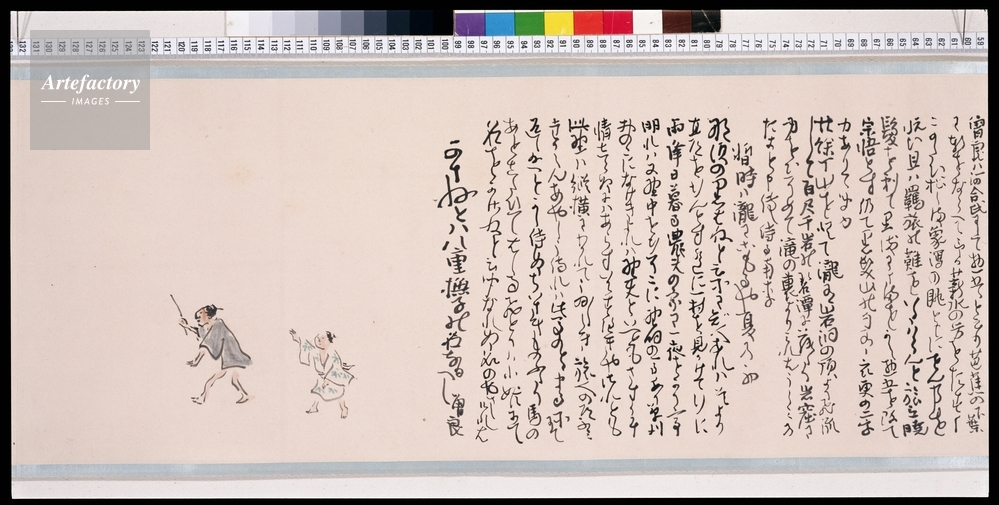 曽良は河合氏にして惣五郎といへり芭蕉の下葉
に軒をならべて予が薪水の労をたすく
このたび松しま象潟の眺ともにせん事を
悦び且は羈旅の難をいたはらんと旅立暁
髪を剃て墨染にさまをかえ惣五を改て
宗悟とす仍て黒髪山の句有衣更の二字
力ありてきこゆ
廿余丁山を登つて瀧有岩洞の頂より飛流
して百尺千岩の碧潭に落たり岩窟に
身をひそめて滝の裏よりみればうらみの
たきと申伝え侍る也
暫時は瀧にこもるや夏の初
那須の黒ばねと云所に知人あればこれより
直道をゆかんとす遥に村を見かけて行に
雨降日暮る農夫の家に一夜をかりて
明れば又野中を行そこに野飼の馬あり草刈
おのこになげきよれば野夫といへどもさすがに
情しらぬにはあらずいかがすべきやされども
此野は縦横にわかれてうゐうゐしき旅人の道ふみ
たがえんあやしう侍れば此馬のとどまる所にて
返し給へとかし侍ぬちいさきものふたり馬の
あとをしたひてはしるひとりは小姫にて
名をかさねと云聞なれぬ名のやさしければ
かさねとは八重撫子の名なるべし 曽良
Artefactory
IMAGES